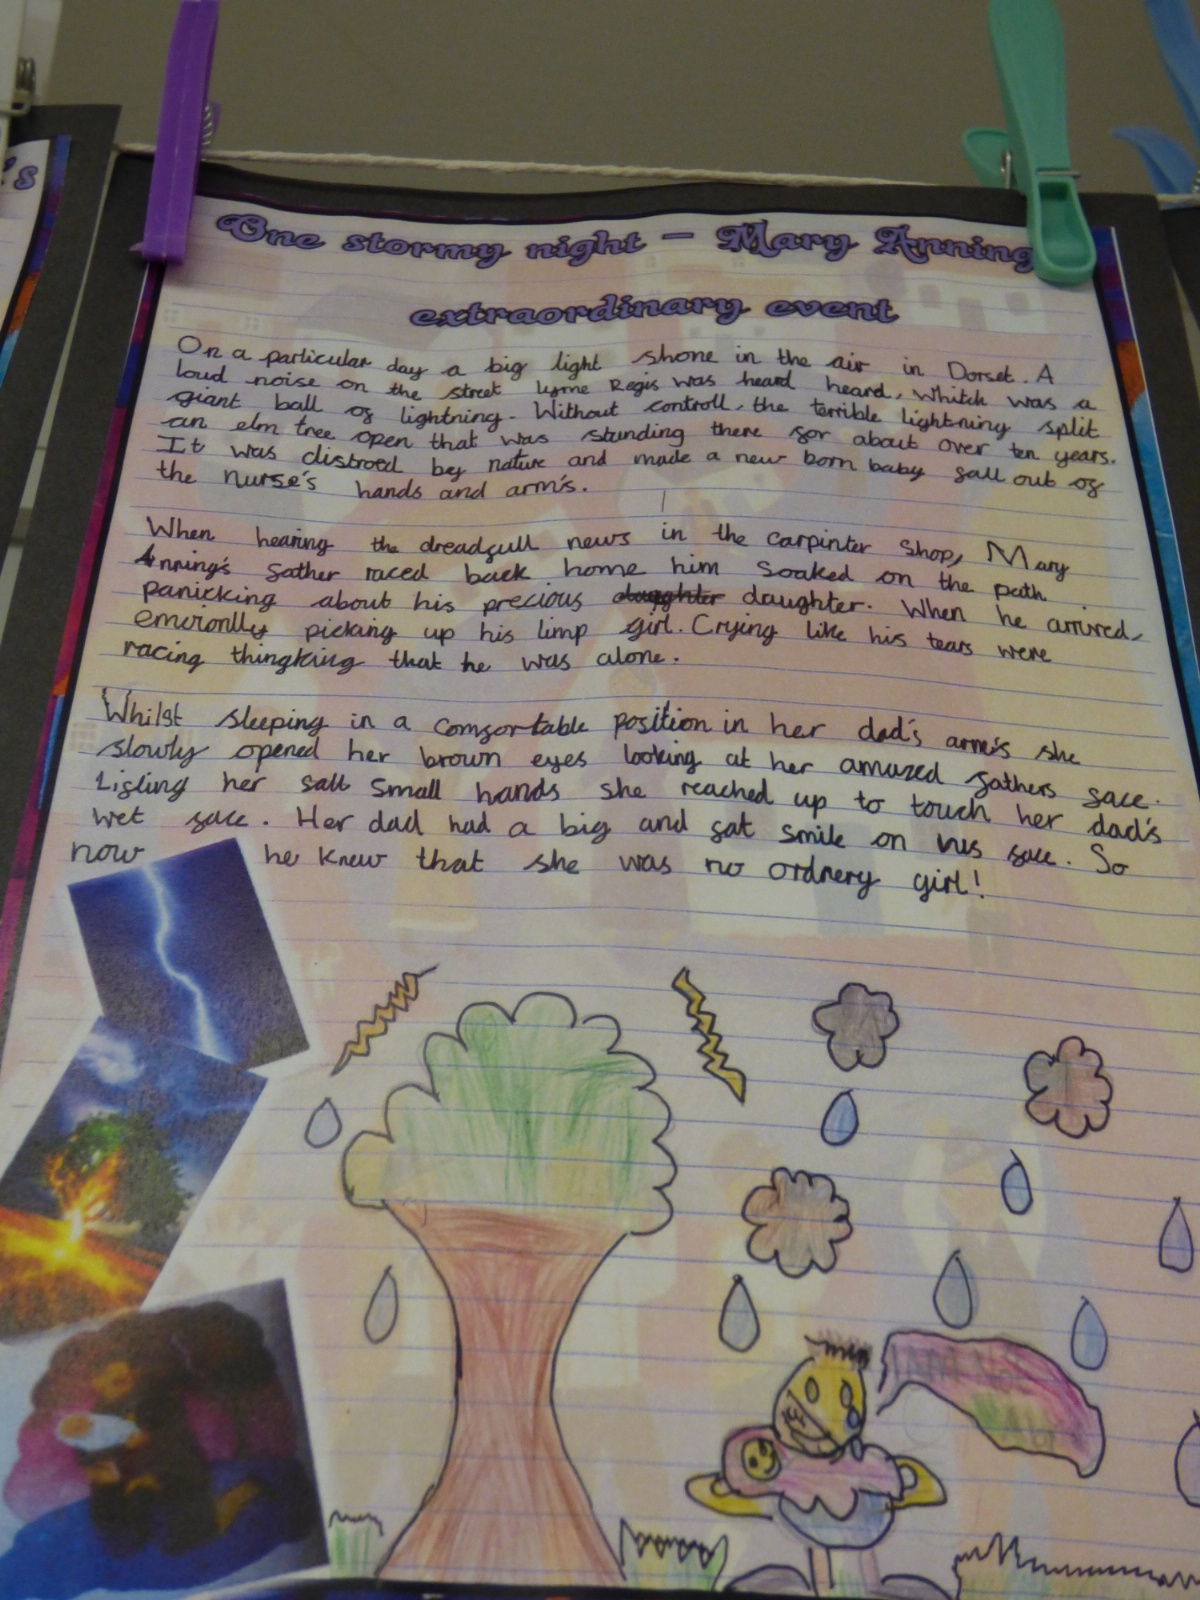 's
One stormy night – Mary Anning
extraordinary event
On a particular day a big light shone in the air in Dorset. A
loud noise on the street lyme Regis was heard heard, whitch was a
giant ball of lightning. Without controll, the terrible lightning split
an elm tree open that was standing there for about over ten years.
It was distroed bey nature and made a new born baby fall out of
the nurse's hands and arm's.
When hearing the dreadfull news in the carpinter shop, Mary
Anning's father raced back home him soaked on the path
panicking about his precious daughter daughter. When he arrived,
emotionlly picking up his limp girl. Crying like his tears were
racing thingking that he was alone.
Whilst sleeping in a comfortable position in her dad's arm's she
slowly opened her brown eyes looking at her amazed fathers face.
Lifting her small hands she reached up to touch her dad's
wet face. Her dad had a big and fat smile on his face. So
now he knew that she was no ordnery girl!